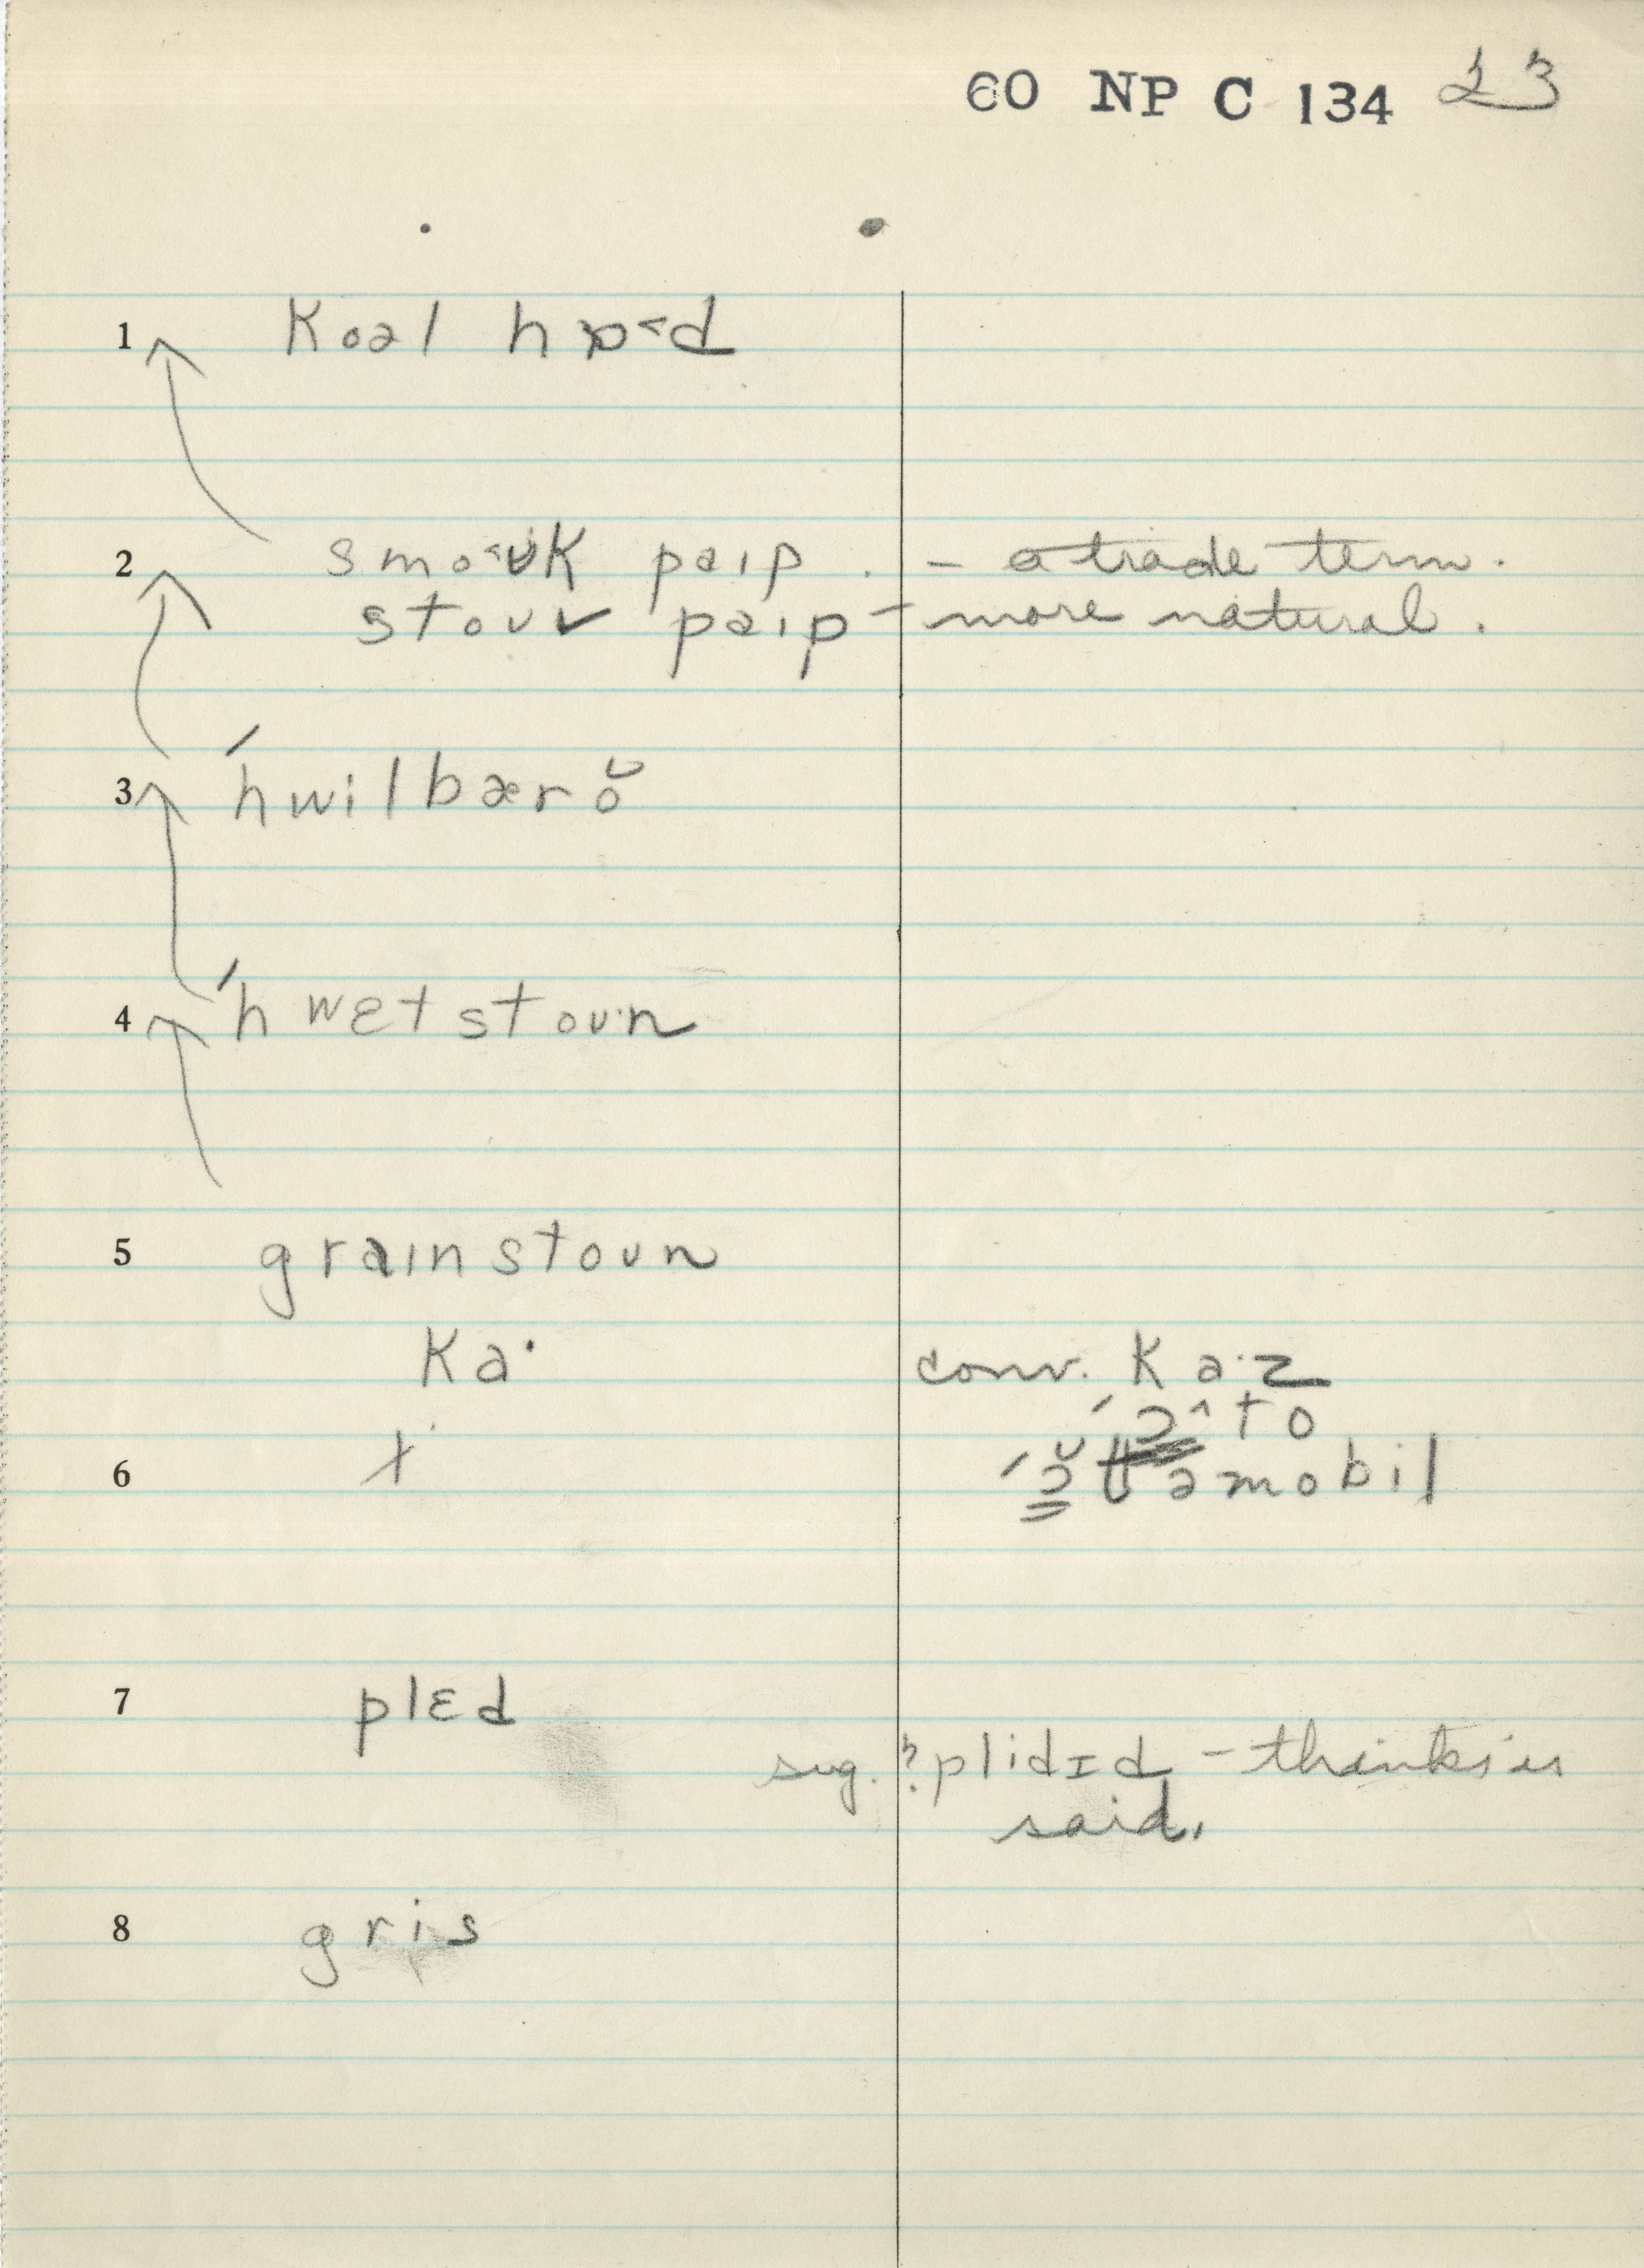 60 NP C 134 23
1 koəl hɒ˂d
2 smo˂ʊk paɪp . – a trade term.
stoʊv paɪp – more natural.
3 ˊhwilbærŏ
4 ˊhwɛtstoʊ·n
5 graɪnstoʊn
ka· conv. ka·z
ˊɔ^to
6 x ˊɔ̆təmobil
7 plɛd
sug. ? plidɪd – thinks is
said.
8 gris